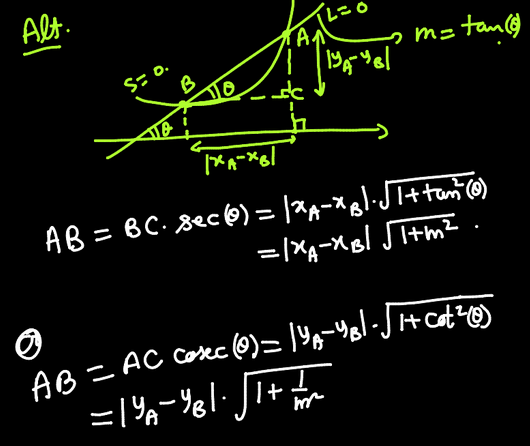 Alt.
L=0
A
m = tan(θ)
|y_A-y_B|
S=0.
B
θ
C
θ
|x_A-x_B|
AB = BC. sec(θ) = |x_A-x_B|.√(1+tan²(θ))
= |x_A-x_B| √(1+m²) .
AB = AC cosec(θ) = |y_A-y_B|.√(1+cot²(θ))
= |y_A-y_B| . √(1+1/m²)